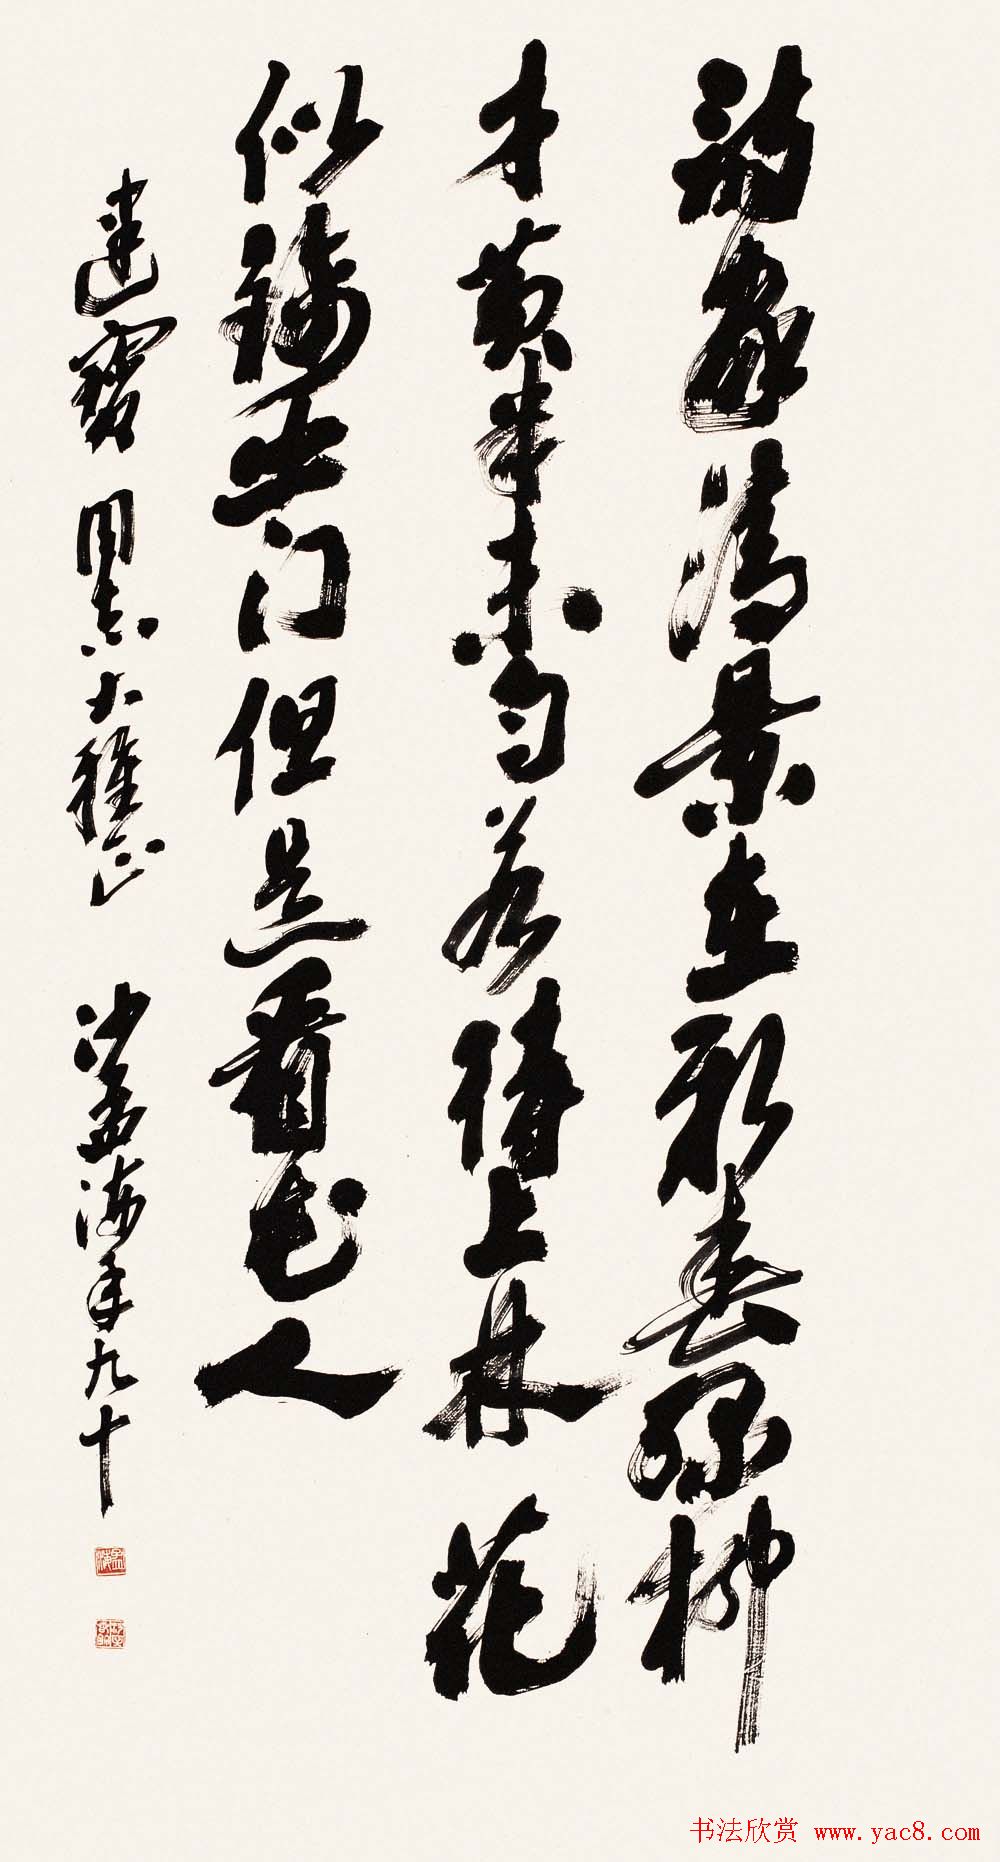 诗家清景在新春绿柳
才黄半未匀若待上林花
似锦出门但是看花人
建寶同志大雅正 沙孟海年九十
书法欣赏 www.yac8.com